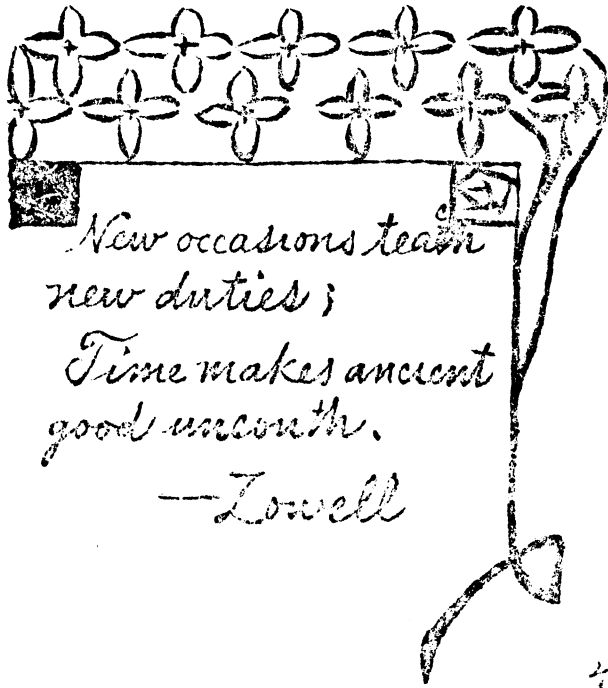 New occasions teach
new duties;
Time makes ancient
good uncouth.
—Lowell